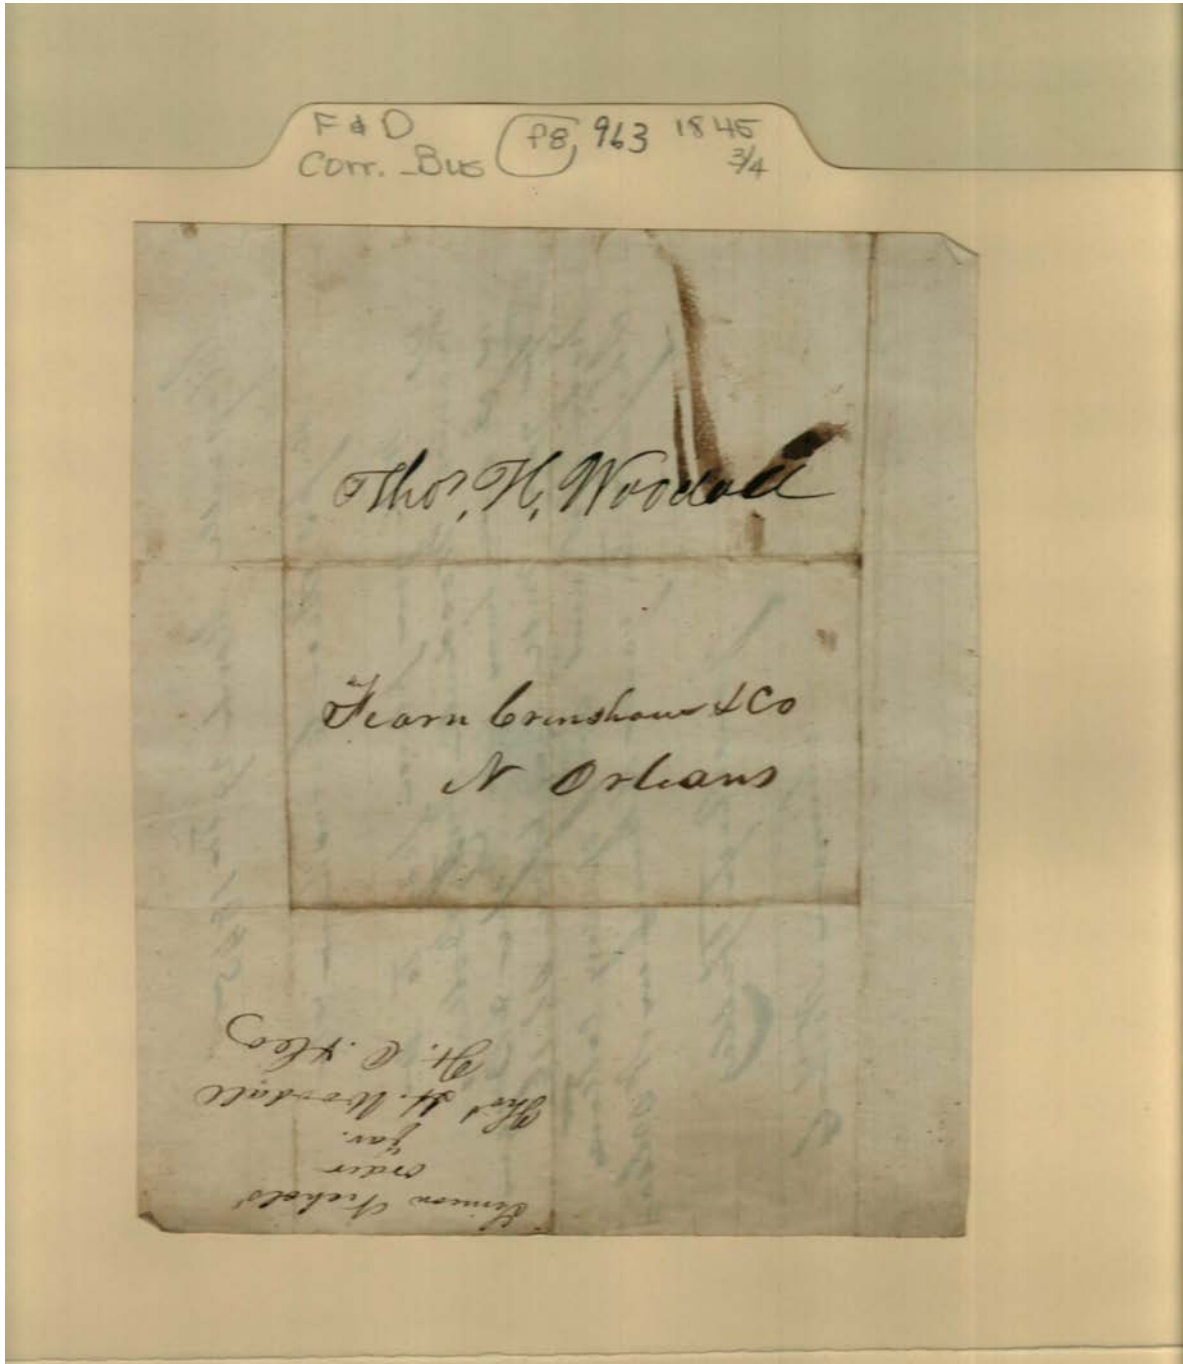 F & D
Corr. - Bus
P8, 963 1845
3/4
Thos, H, Woodall
Fearn Crenshaw & Co
N Orleans
Nichols'
order
fav.
Thos H. Woodall
& Co